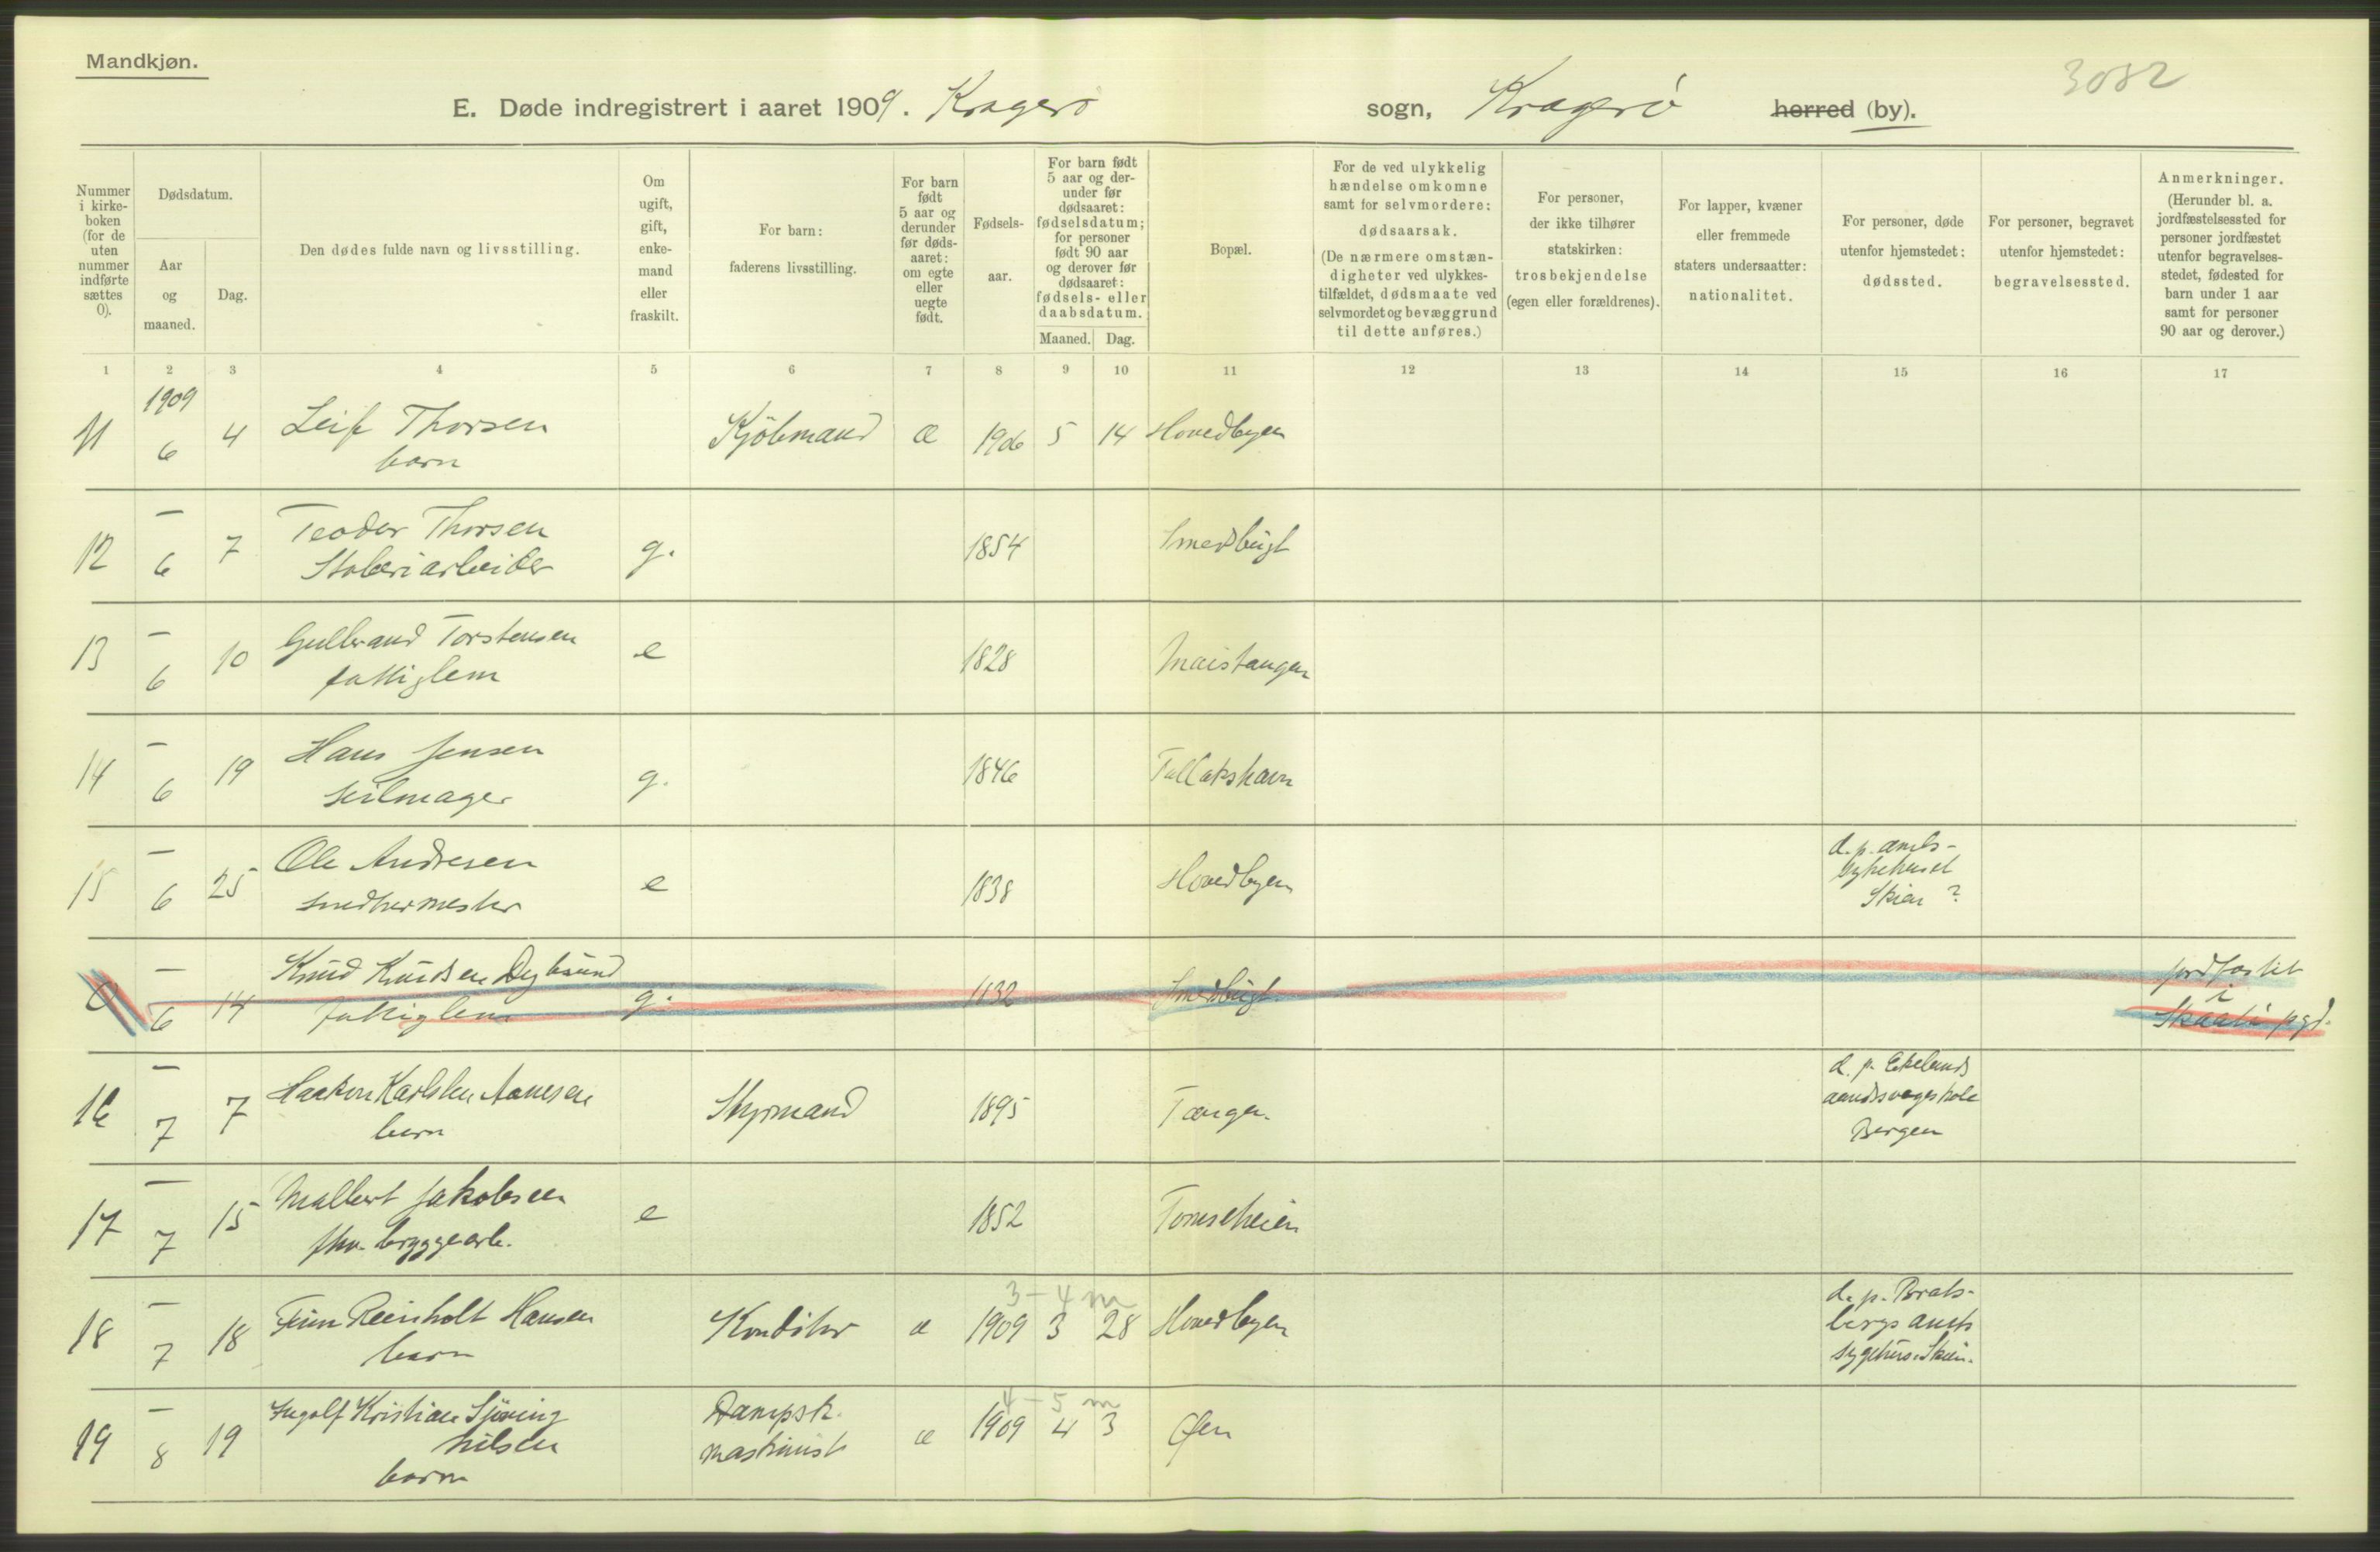 Mandkjøn.
3082
E. Døde indregistrert i aaret 1909. Kragerø sogn, Kragerø herred (by).
Nummer i kirke-boken (for de uten nummer indførte sættes 0).
Dødsdatum.
Aar og maaned.
Dag.
Den dødes fulde navn og livsstilling.
Om ugift, gift, enke-mand eller fraskilt.
For barn: faderens livsstilling.
For barn født 5 aar og derunder før døds-aaret: om egte eller uegte født.
Fødsels-aar.
For barn født 5 aar og der-under før dødsaaret: fødselsdatum; for personer født 90 aar og derover før dødsaaret: fødsels- eller daabsdatum.
Maaned. Dag.
Bopæl.
For de ved ulykkelig hændelse omkomne samt for selvmordere: dødsaarsak. (De nærmere omstæn-digheter ved ulykkes-tilfældet, dødsmaate ved selvmordet og bevæggrund til dette anføres.)
For personer, der ikke tilhører statskirken: trosbekjendelse (egen eller forældrenes).
For lapper, kvæner eller fremmede staters undersaatter: nationalitet.
For personer, døde utenfor hjemstedet: dødssted.
For personer, begravet utenfor hjemstedet: begravelsessted.
Anmerkninger. (Herunder bl. a. jordfæstelsessted for personer jordfæstet utenfor begravelses-stedet, fødested for barn under 1 aar samt for personer 90 aar og derover.)
1 2 3 4 5 6 7 8 9 10 11 12 13 14 15 16 17
1909
11 6 4 Leif Thorsen Kjöbmand æ 1906 5 14 Hovedbyen
barn
—
12 6 7 Teodor Thorsen g. 1854 Smedbugt
13 — 6 10 Gulbrand Torstensen e 1828
fattiglem
—
14 6 19 Hans Jensen g. 1846 Tallakshavn
seilmager
—
15 6 25 Ole Andresen e 1838 Hovedbyen d. p. amts-
snedkermester sykehuset
Skien ?
—
0 6 14 Knud Knudsen g. 1832 Smedbugt jordfæstet
fattiglem i
pgd.
—
16 7 7 Haakon Karlsen Aanesen Styrmand 1895 Tangen. d. p. Ekelunds
barn aandssvageskole
Bergen
—
17 7 15 Jakobsen e 1852
fhv. bryggearb.
—
3 – 4 m
18 7 18 Finn Reinholt Hansen Konditor æ 1909 3 28 Hovedbyen d. p. Brats-
barn bergs amts
sygehus. Skien.
—
4 – 5 m
19 8 19 Ingolf Kristian Dampsk. æ 1909 4 3 Øen
Nilsen maskinist
barn